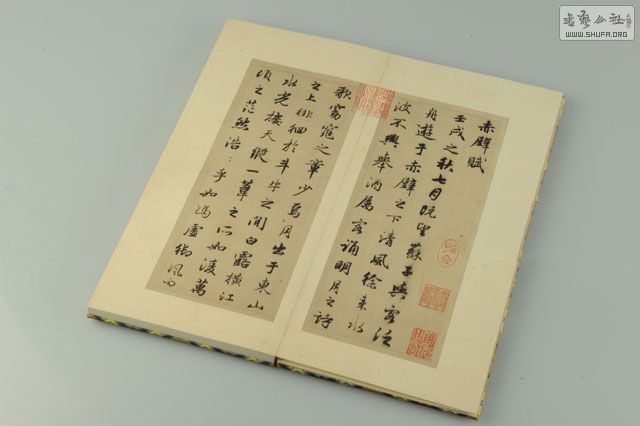 赤壁賦
壬戌之秋七月既望蘇子與客泛
舟遊于赤壁之下清風徐來水
波不興舉酒屬客誦明月之詩
歌窈窕之章少焉月出于東山
之上徘徊於斗牛之間白露橫江
水光接天縱一葦之所如凌萬
頃之茫然浩〻乎如馮虛御風而
書藝公社
WWW.SHUFA.ORG